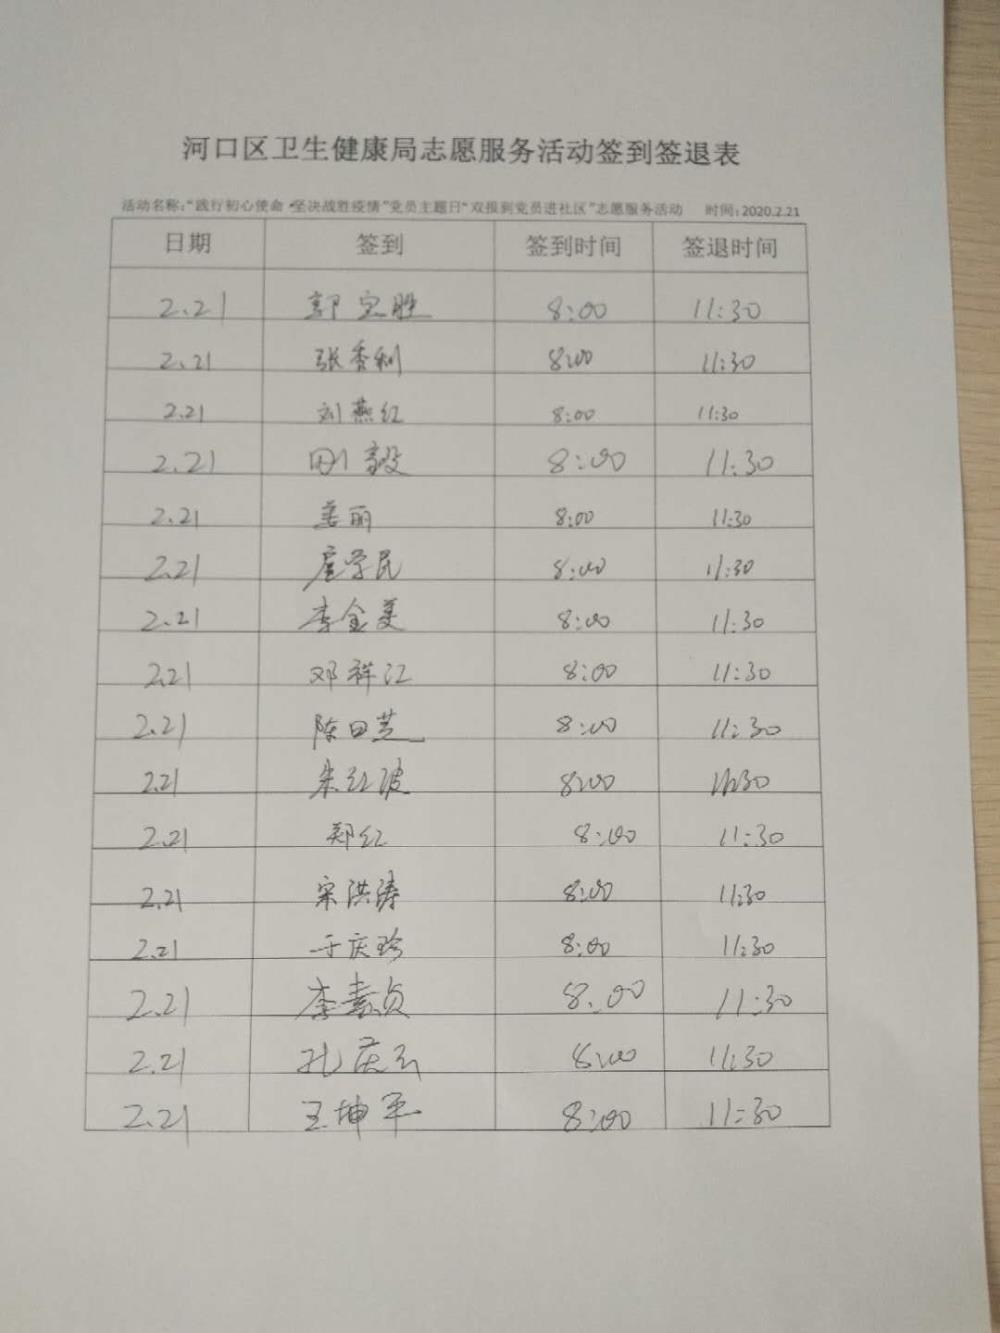 河口区卫生健康局志愿服务活动签到签退表
活动名称:“践行初心使命·坚决战胜疫情”党员主题日“双报到党员进社区”志愿服务活动 时间:2020.2.21
日期 签到 签到时间 签退时间
2.21 郭宝胜 8:00 11:30
2.21 张香利 8:00 11:30
2.21 刘燕红 8:00 11:30
2.21 毅 8:00 11:30
2.21 姜丽 8:00 11:30
2.21 扈学民 8:00 11:30
2.21 李金美 8:00 11:30
2.21 邓祥江 8:00 11:30
2.21 陈曰芝 8:00 11:30
2.21 朱红波 8:00 11:30
2.21 郑红 8:00 11:30
2.21 宋洪涛 8:00 11:30
2.21 于庆珍 8:00 11:30
2.21 李素贞 8:00 11:30
2.21 孔庆云 8:00 11:30
2.21 王坤平 8:00 11:30